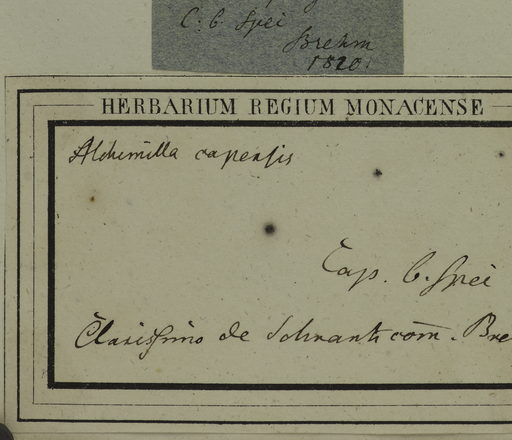 C. b. Spei
Brehm
1820.
HERBARIUM REGIUM MONACENSE
Alchemilla capensis
Cap. b. Spei
Clarissimo de Schrank com̄. Bre